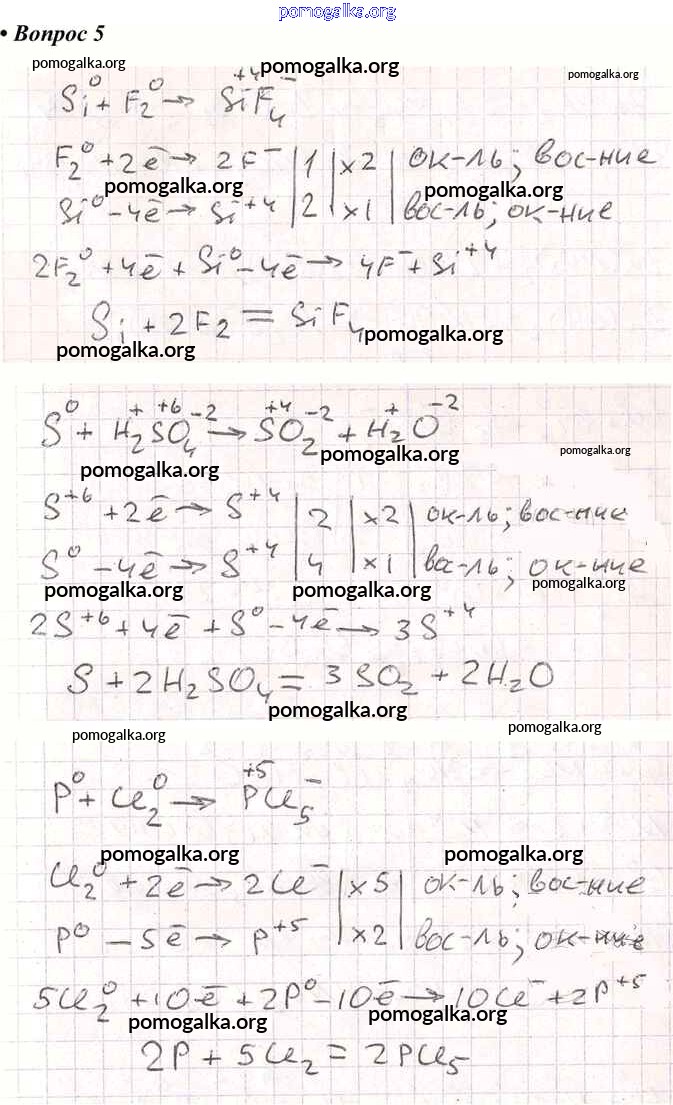 pomogalka.org
• Вопрос 5
pomogalka.org pomogalka.org pomogalka.org
Si⁰ + F₂⁰ → Si⁺⁴F₄⁻
F₂⁰ + 2ē → 2F⁻ | 1 | ×2 | ок-ль; вос-ние
pomogalka.org pomogalka.org
Si⁰ – 4ē → Si⁺⁴ | 2 | ×1 | вос-ль; ок-ние
2F₂⁰ + 4ē + Si⁰ – 4ē → 4F⁻ + Si⁺⁴
Si + 2F₂ = SiF₄
pomogalka.org pomogalka.org
S⁰ + H₂⁺S⁺⁶O₄⁻² → S⁺⁴O₂⁻² + H₂⁺O⁻²
pomogalka.org pomogalka.org pomogalka.org
S⁺⁶ + 2ē → S⁺⁴ | 2 | ×2 | ок-ль; вос-ние
S⁰ – 4ē → S⁺⁴ | 4 | ×1 | вос-ль; ок-ние
pomogalka.org pomogalka.org pomogalka.org
2S⁺⁶ + 4ē + S⁰ – 4ē → 3S⁺⁴
S + 2H₂SO₄ = 3SO₂ + 2H₂O
pomogalka.org
pomogalka.org pomogalka.org
P⁰ + Cl₂⁰ → P⁺⁵Cl₅⁻
pomogalka.org pomogalka.org
Cl₂⁰ + 2ē → 2Cl⁻ | ×5 | ок-ль; вос-ние
P⁰ – 5ē → P⁺⁵ | ×2 | вос-ль; ок-ние
5Cl₂⁰ + 10ē + 2P⁰ – 10ē → 10Cl⁻ + 2P⁺⁵
pomogalka.org pomogalka.org
2P + 5Cl₂ = 2PCl₅